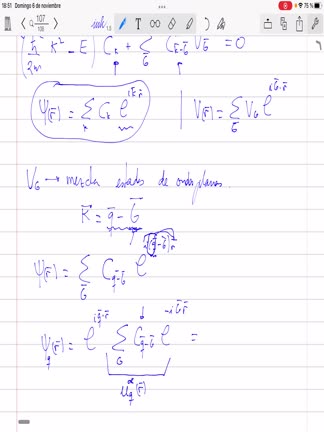 18:51 Domingo 6 de noviembre 75 %
107
108
(ħ²/2m K² − E) C_k + Σ_G C_{k−G} V_G = 0
ψ(r) = Σ_k C_k e^{ik·r} | V(r) = Σ_G V_G e^{iG·r}
V_G → mezcla estados de ondas planas.
K = q − G
ψ(r) = Σ_G C_{q−G} e^{i(q−G)r}
ψ_q(r) = e^{iq·r} Σ_G C_{q−G} e^{−iG·r} =
u_q(r)